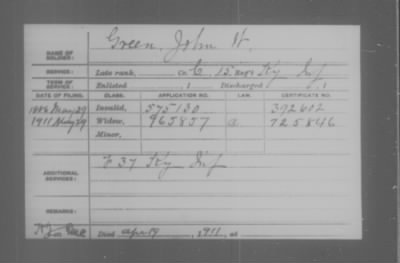 Green, John W.
NAME OF SOLDIER:
SERVICE: Late rank, Co. C, 15 Reg't Ky Inf
TERM OF SERVICE: Enlisted , 1 Discharged , 1
DATE OF FILING. CLASS. APPLICATION NO. LAW. CERTIFICATE NO.
1886 May 29 Invalid, 575130 392602
1911 29 Widow, 965857 725846
Minor,
ADDITIONAL SERVICES: F 37 Ky Inf
REMARKS:
Died Apr 19, 1911, at